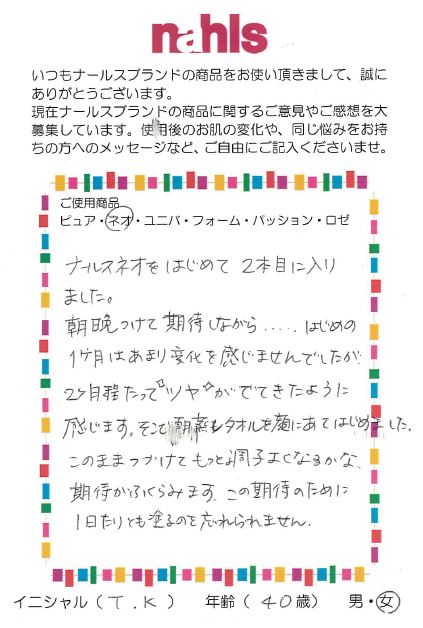 nahls
いつもナールスブランドの商品をお使い頂きまして、誠に
ありがとうございます。
現在ナールスブランドの商品に関するご意見やご感想を大
募集しています。使用後のお肌の変化や、同じ悩みをお持
ちの方へのメッセージなど、ご自由にご記入くださいませ。
ご使用商品
ピュア・ネオ・ユニバ・フォーム・パッション・ロゼ
ナールスネオをはじめて 2本目に入り
ました。
朝晩つけて期待しながら.....はじめの
1ヶ月はあまり変化を感じませんでしたが
2ヶ月程たって"ツヤ"がでてきたように
感じます。そこで 朝蒸しタオルを顔にあてはじめました。
このままつづけてもっと調子よくなるかな、
期待がふくらみます。この期待のために
1日たりとも塗るのを忘れられません。
イニシャル(T.K) 年齢(40歳) 男・女